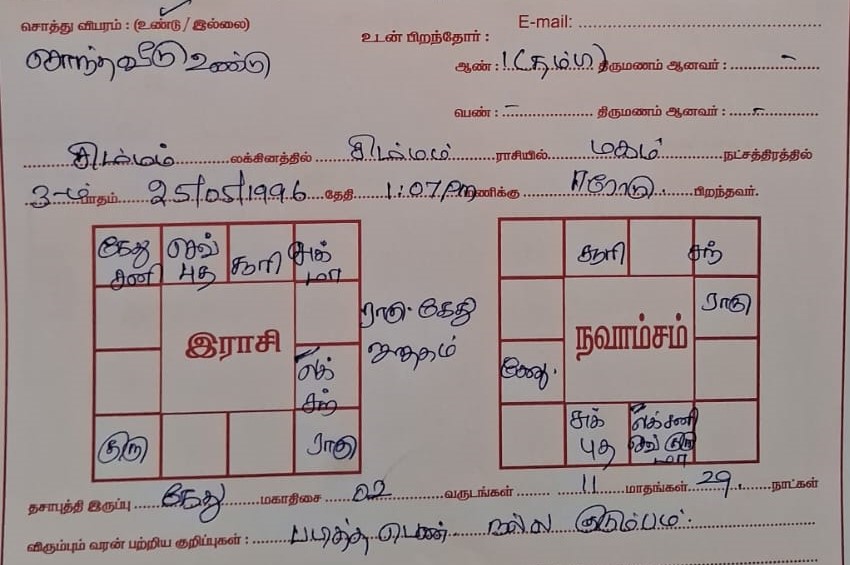 E-mail:
சொத்து விபரம் : (உண்டு / இல்லை) உடன் பிறந்தோர் :
சொந்த வீடு உண்டு
ஆண் : 1 (தம்பி) திருமணம் ஆனவர் : -
பெண் : - திருமணம் ஆனவர் : -
சிம்மம் லக்கினத்தில் சிம்மம் ராசியில் மகம் நட்சத்திரத்தில்
3-ம் பாதம் 25/05/1996 தேதி 1:07 PM மணிக்கு ஈரோடு பிறந்தவர்.
கேது சனி செவ் புத சூரி சுக் மா
சூரி சந்
ராகு கேது ஜாதகம்
ராகு
இராசி
நவாம்சம்
லக் சந்
கேது
குரு ராகு
சுக் புத லக் சனி செவ் குரு மா
தசாபுத்தி இருப்பு கேது மகாதிசை 02 வருடங்கள் 11 மாதங்கள் 29 நாட்கள்
விரும்பும் வரன் பற்றிய குறிப்புகள் : படித்த பெண் நல்ல குடும்பம்.